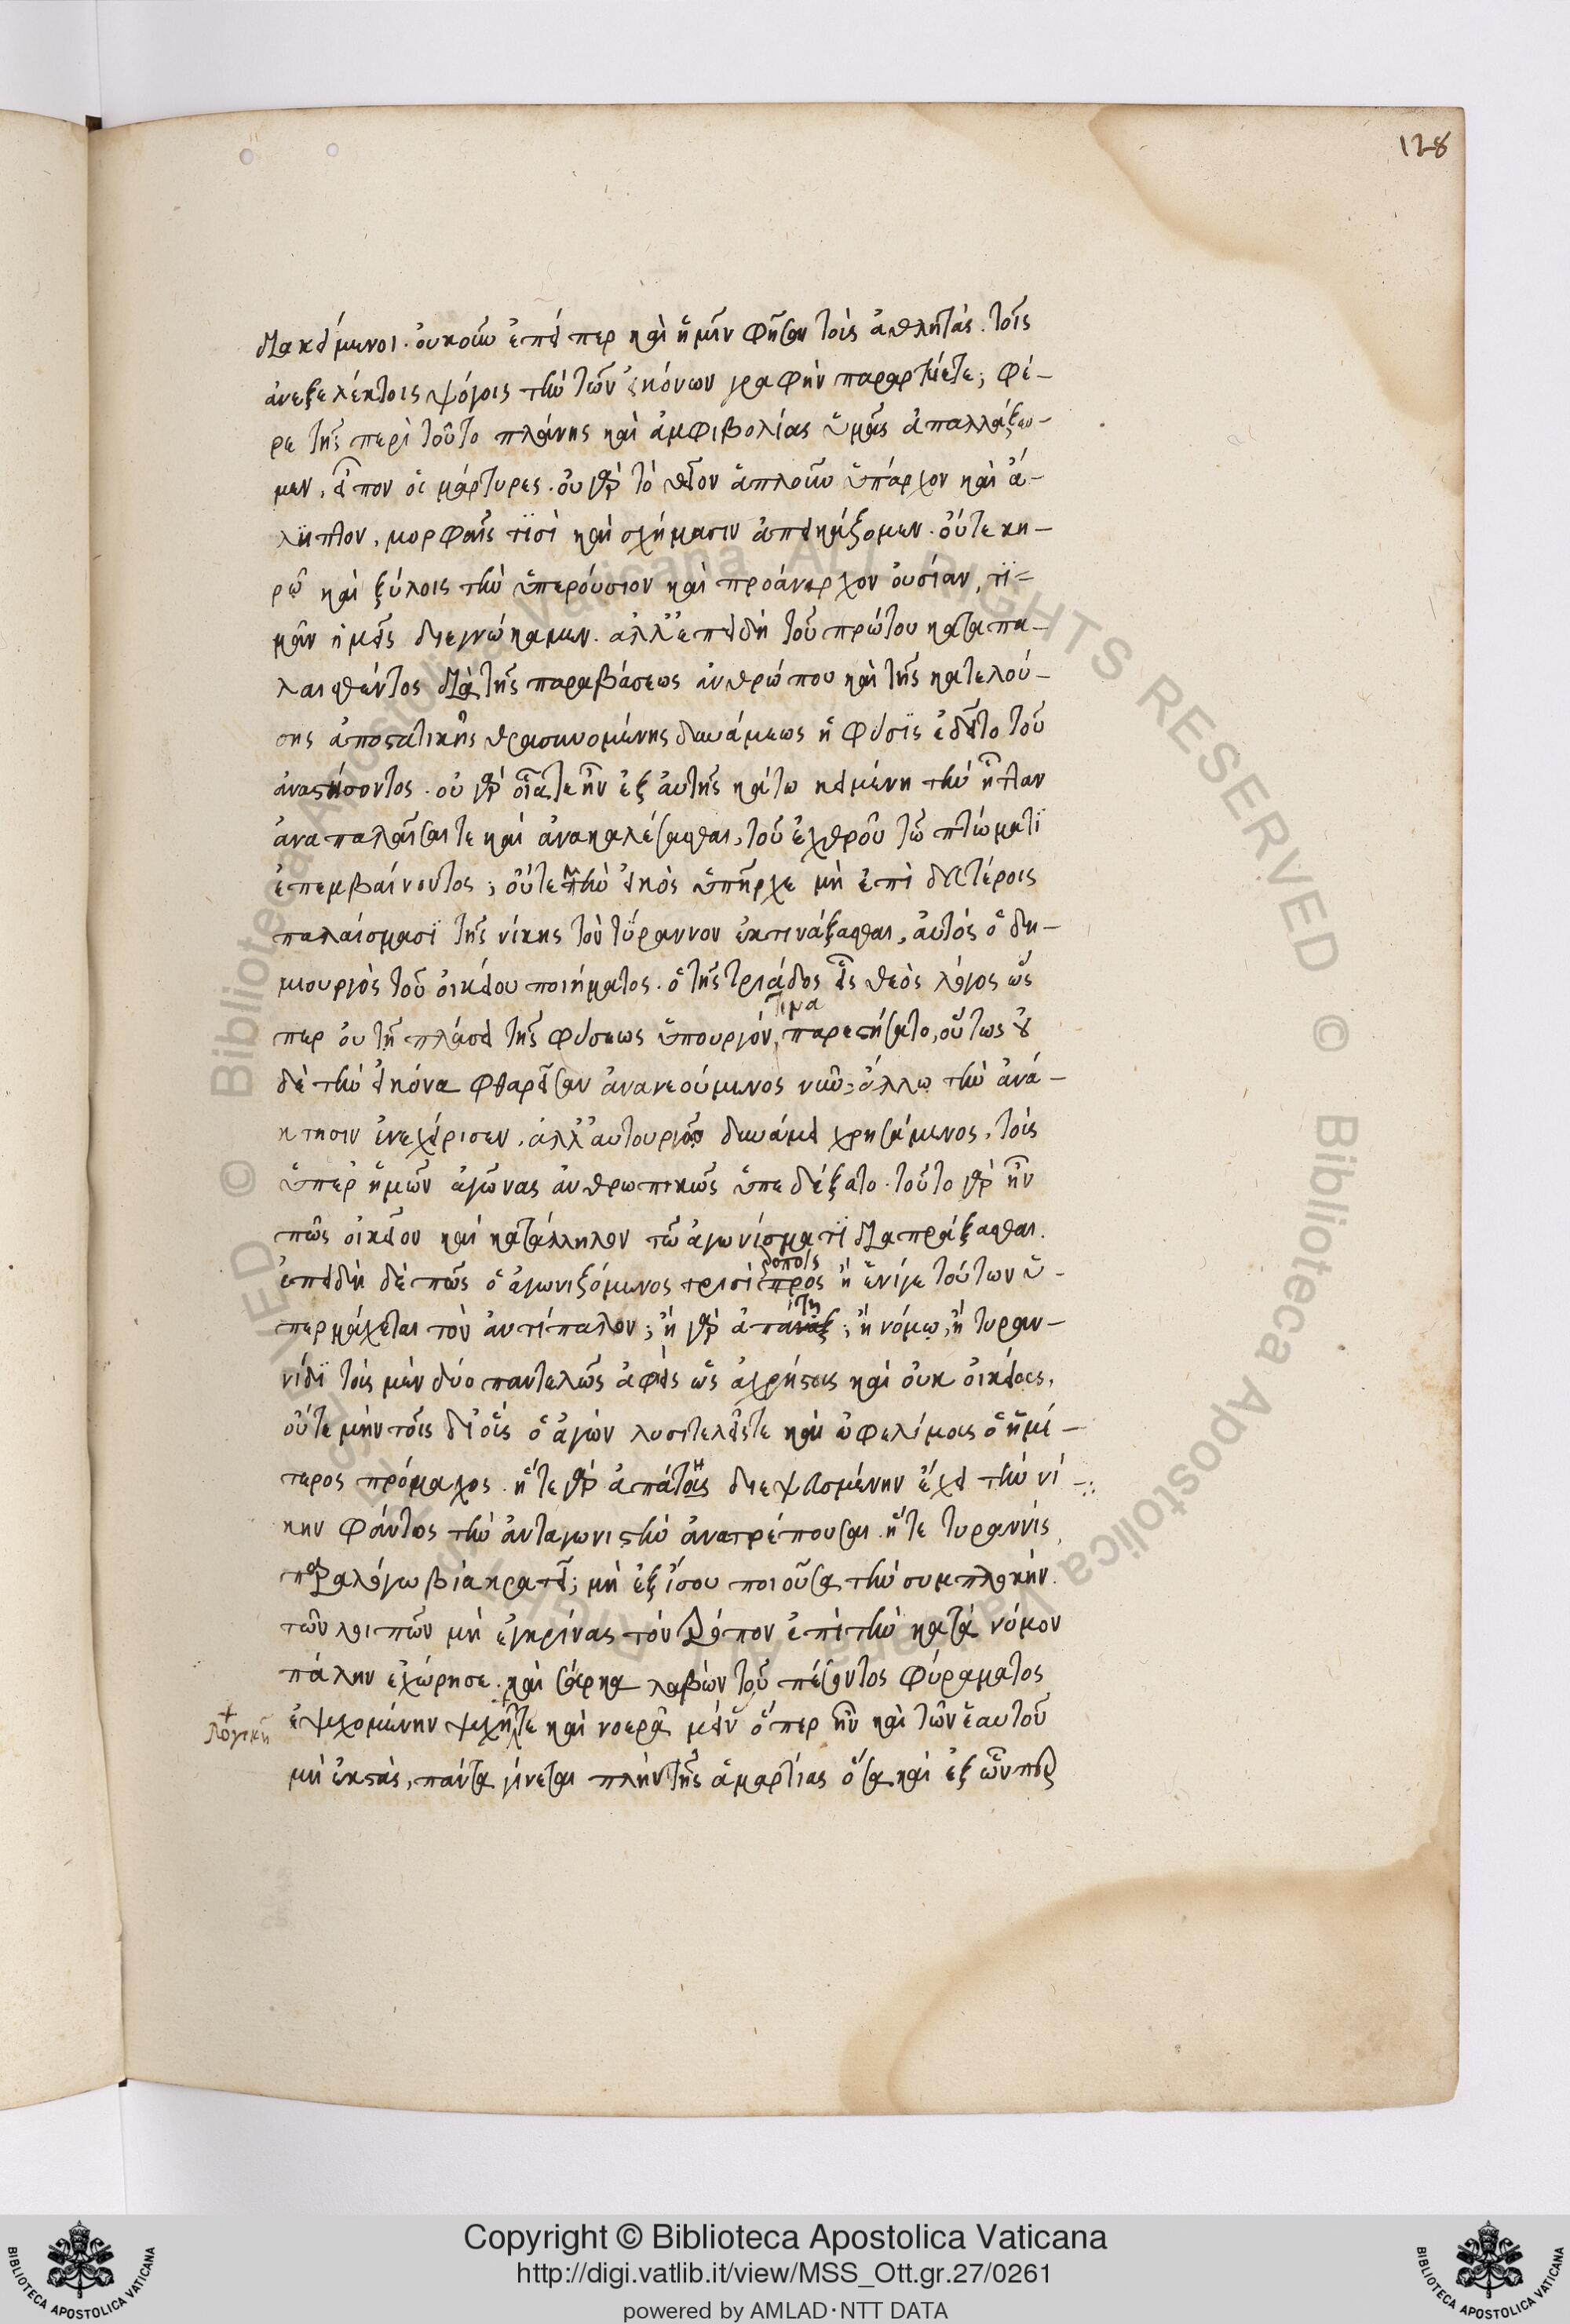 128
διακείμενοι. οὐκοῦν ἐπεί περ καὶ ἡμῖν φῆσαν τοῖς ἀθληταῖς. τοῖς
ἀνεξελέκτοις ψόγοις τὴν τῶν εἰκόνων γραφὴν παραρτύετε; φέ-
ρε τῆς περὶ τοῦτο πλάνης καὶ ἀμφιβολίας ὑμᾶς ἀπαλλάξω-
μεν, εἶπον οἱ μάρτυρες. οὐ γὰρ τὸ θεῖον ἁπλοῦν ὑπάρχον καὶ ἄ-
ληπτον, μορφαῖς τισὶ καὶ σχήμασιν ἀπεικάζομεν. οὔτε κη-
ρῷ καὶ ξύλοις τὴν ὑπερούσιον καὶ προάναρχον οὐσίαν, τι-
μᾶν ἡμεῖς διεγνώκαμεν. ἀλλ' ἐπειδὴ τοῦ πρώτου καταπα-
λαισθέντος διὰ τῆς παραβάσεως ἀνθρώπου καὶ τῆς κατελού-
σης ἀποστατικῆς θρασυνομένης δυνάμεως ἡ φύσις ἐδεῖτο τοῦ
ἀναστήσοντος. οὐ γὰρ οἵα τε ἦν ἐξ αὐτῆς κάτω κειμένη τὴν ἧτταν
ἀναπαλαῖσαι τε καὶ ἀνακαλέσασθαι, τοῦ ἐχθροῦ τῷ πτώματι
ἐπεμβαίνοντος; οὔτε μὴν εἰκὸς ὑπῆρχε μὴ ἐπὶ δευτέροις
παλαίσμασι τῆς νίκης τὸν τύραννον ἐκτινάξασθαι, αὐτός ὁ δη-
μιουργὸς τοῦ οἰκείου ποιήματος. ὁ τῆς τριάδος εἷς θεὸς λόγος ὥς
περ ἐν τῇ πλάσει τῆς φύσεως ὑπουργόν, τινα παρεστήσατο, οὕτως οὐ
δὲ τὴν εἰκόνα φθαρεῖσαν ἀνανεούμενος νῦν, ἄλλῳ τὴν ἀνά-
κτησιν ἐνεχείρισεν. ἀλλ' αὐτουργῷ δυνάμει χρησάμενος, τοῖς
ὑπὲρ ἡμῶν ἀγῶνας ἀνθρωπικῶς ὑπεδέξατο. τοῦτο γὰρ ἦν
πῶς οἰκεῖον καὶ κατάλληλον τῷ ἀγωνίσματι διαπράξασθαι.
ἐπειδὴ δὲ πῶς ὁ ἀγωνιζόμενος τρισὶ τρόποις ἢ ἑνί γε τούτων ὑ-
περμάχεται τὸν ἀντίπαλον; ἢ γὰρ ἀπάτῃ; ἢ νόμῳ, ἢ τυραν-
νίδι τοῖς μὲν δύο παντελῶς ἀφεὶς ὡς ἀχρήστοις καὶ οὐκ οἰκείοις,
οὔτε μὴν τοῖς δι' οἷς ὁ ἀγὼν λυσιτελεῖς τε καὶ ὠφελίμοις ὁ ἡμέ-
τερος πρόμαχος. ἥ τε γὰρ ἀπάτη διεψευσμένην ἔχει τὴν νί-
κην φάντος τὴν ἀνταγωνιστὴν ἀνατρέπουσαι. ἥ τε τυραννίς,
παραλόγω βία κρατεῖ; μὴ ἐξίσου ποιοῦσα τὴν συμπλοκὴν.
τῶν λοιπῶν μὴ ἐγκρίνας τὸν τρόπον ἐπὶ τὴν κατὰ νόμον
πάλην ἐχώρησε. καὶ σάρκα λαβὼν τοῦ πέσοντος φύραματος
ἐψυχομένην ψυχῇ τε καὶ νοερᾷ μείν' ὅπερ ἦν καὶ τῶν ἑαυτοῦ
λογικῇ
μὴ ἐκστὰς, πάντα γίνεται πλὴν τῆς ἁμαρτίας ὅσα καὶ ἐξ ὧνπερ
Copyright © Biblioteca Apostolica Vaticana
http://digi.vatlib.it/view/MSS_Ott.gr.27/0261
powered by AMLAD·NTT DATA